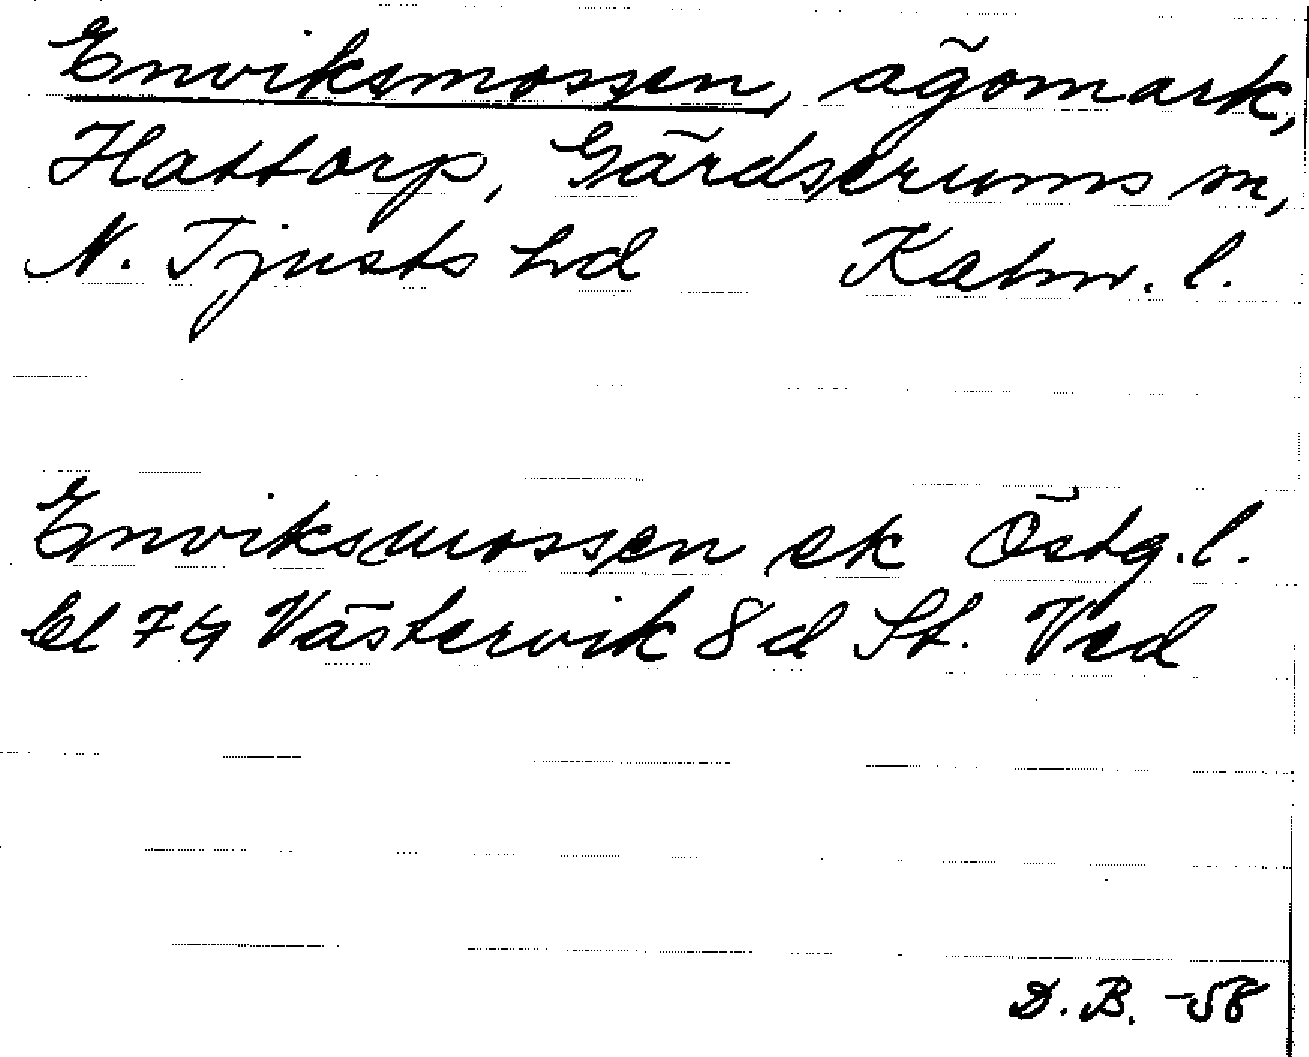 Enviksmossen, ägomark,
Hattorp, Gärdserums sn,
N. Tjusts hd Kalm. l.
Enviksmossen ek Östg. l.
bl 74 Västervik 8 d St. Ved
D. B. -58